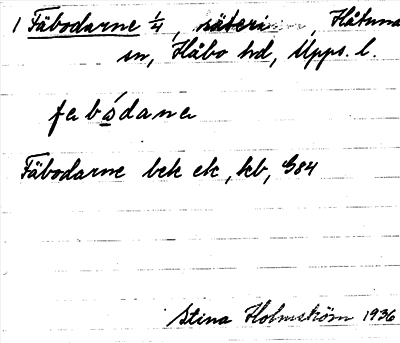 1 Fäbodarne 1/4, säteri, Håtuna
sn, Håbo hd, Upps. l.
fabódana
Fäbodarne bek ek, kb, G84
Stina Holmström 1936